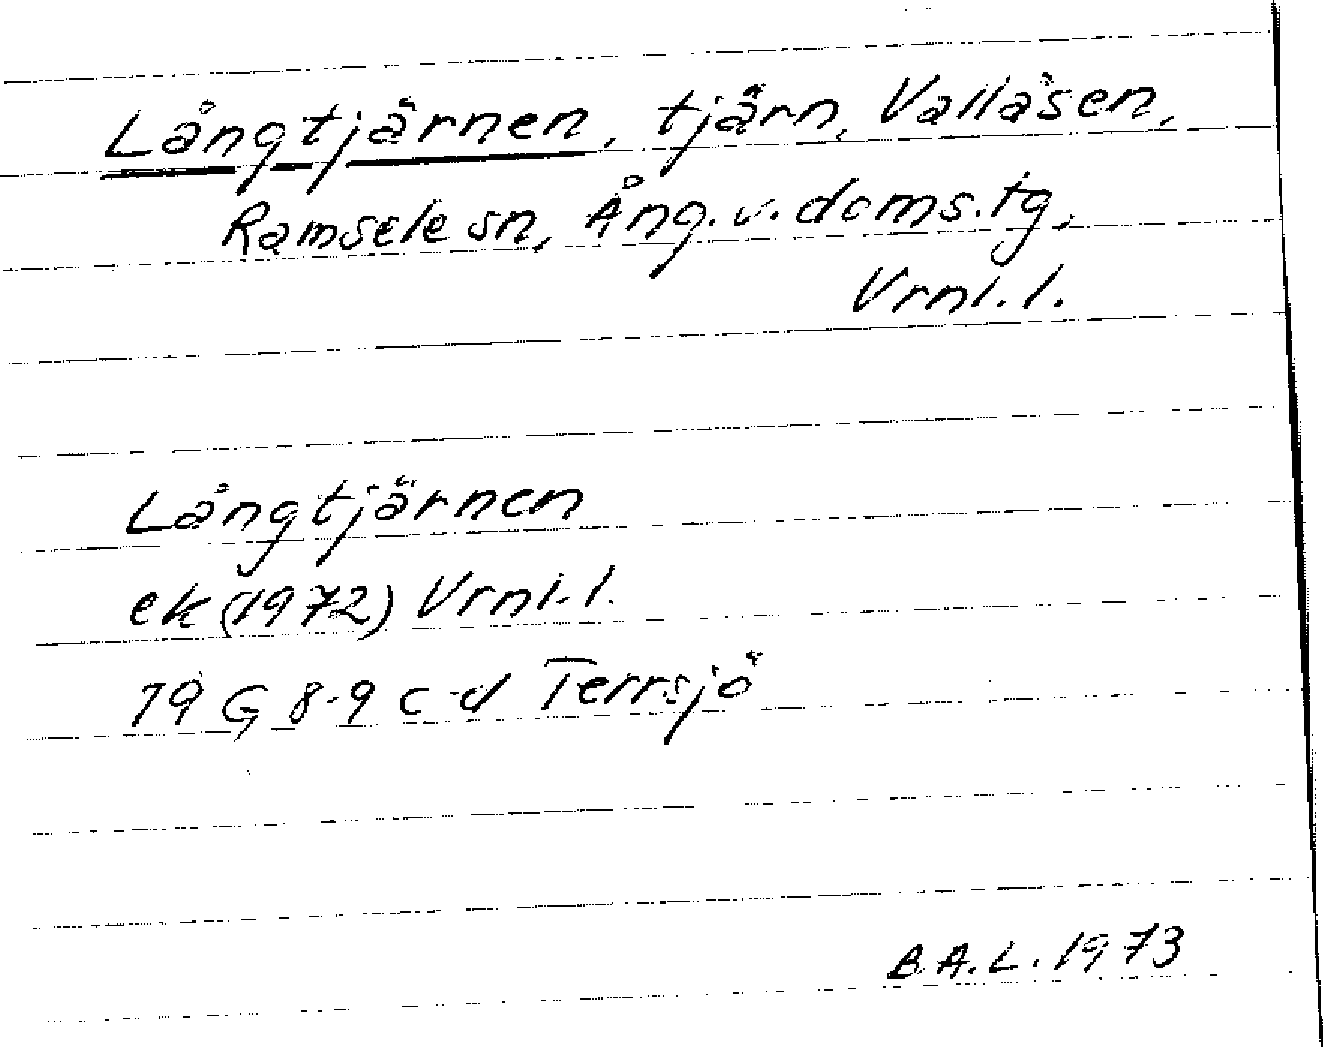 Långtjärnen, tjärn, Vallåsen,
Ramsele sn, Ång. v. doms. tg,
Vrnl. l.
Långtjärnen
ek (1972) Vrnl. l.
19 G 8-9 c-d Terrsjö
B.A.L. 1973